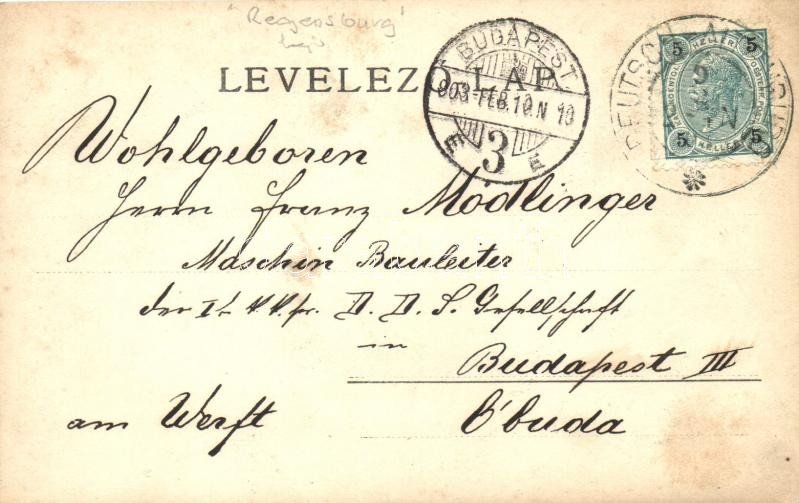 "Regensburg"
LEVELEZŐ LAP.
BUDAPEST
903 FEB. 10. N 10
3
E E
5 HELLER 5
5 HELLER 5
Wohlgeboren
Herrn Franz Mödlinger
Maschin Bauleiter
der I. k. k. pr. D. D. S. Gesellschaft
in
Budapest III
am Werft Óbuda